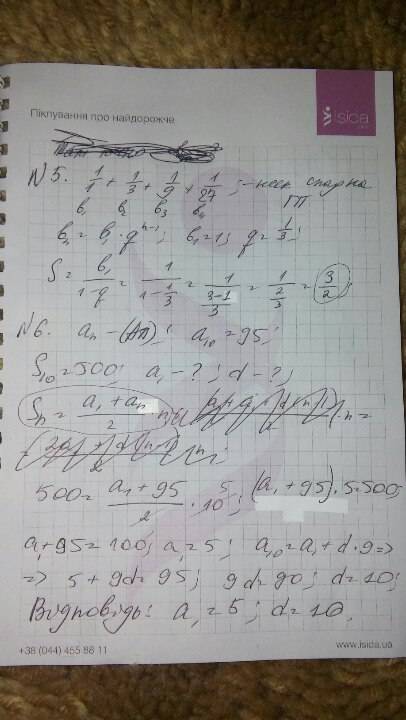 Піклування про найдорожче
isica
N5. 1/1 + 1/3 + 1/9 + 1/27 ; - неск спадна ГП
b₁ b₂ b₃ b₄
bₙ = b₁ · qⁿ⁻¹; b₁ = 1; q = 1/3;
S = b₁/(1-q) = 1/(1 - 1/3) = 1/((3-1)/3) = 1/(2/3) = 3/2;
N6. aₙ - (АП); a₁₀ = 95;
S₁₀ = 500; a₁ - ?; d - ?;
Sₙ = (a₁ + aₙ)/2 · n;
500 = (a₁ + 95)/2 · 10 5; (a₁ + 95) · 5 = 500;
a₁ + 95 = 100; a₁ = 5; a₁₀ = a₁ + d · 9 =>
=> 5 + 9d = 95; 9d = 90; d = 10;
Відповідь: a₁ = 5; d = 10.
+38 (044) 455 88 11 www.isida.ua